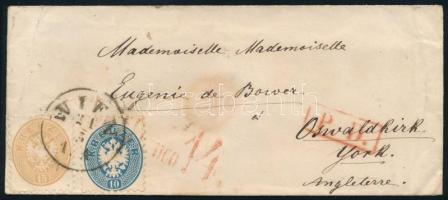 Mademoiselle Mademoiselle
Eugenie de Bower
à
Oswaldkirk
York.
Angleterre.
WIEN
10